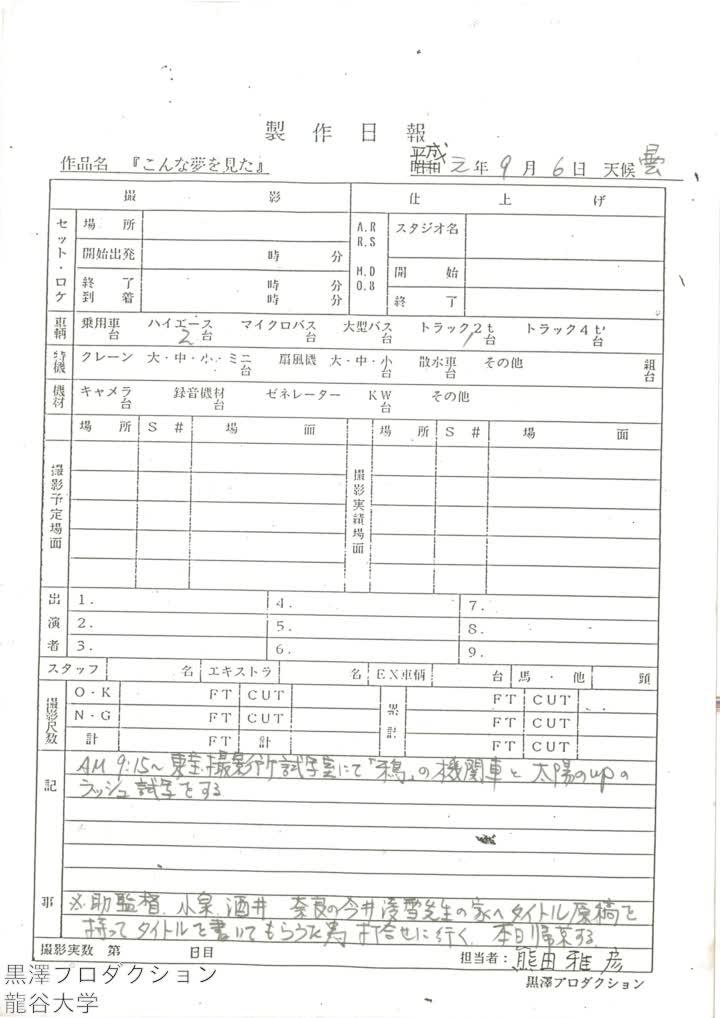 製作日報
作品名 『こんな夢を見た』 平成 昭和 元年 9月 6日 天候 曇
撮影 仕上げ
セット・ロケ 場所 A.R R.S スタジオ名
開始出発 時 分 M.D O.8 開始
終了 時 分
到着 時 分 終了
車輌 乗用車 台 ハイエース 2台 マイクロバス 台 大型バス 台 トラック2t 1台 トラック4t 台
特機 クレーン 大・中・小・ミニ 台 扇風機 大・中・小 台 散水車 台 その他 組 台
機材 キャメラ 台 録音機材 ゼネレーター KW 台 その他
場所 S# 場面 場所 S# 場面
撮影予定場面 撮影実績場面
出演者 1. 4. 7.
2. 5. 8.
3. 6. 9.
スタッフ 名 エキストラ 名 EX車輌 台 馬・他 頭
撮影尺数 O・K FT CUT 累計 FT CUT
N・G FT CUT FT CUT
計 FT 計 FT CUT
記事 AM 9:15〜 東宝撮影所試写室にて「鴉」の機関車と太陽のupの
ラッシュ試写をする
※助監督 小泉、酒井 奈良の今井凌雪先生の家へタイトル原稿を
持ってタイトルを書いてもらうため打合せに行く。本日帰京する
撮影実数 第 日目 担当者：熊田雅彦
黒澤プロダクション
黒澤プロダクション
龍谷大学